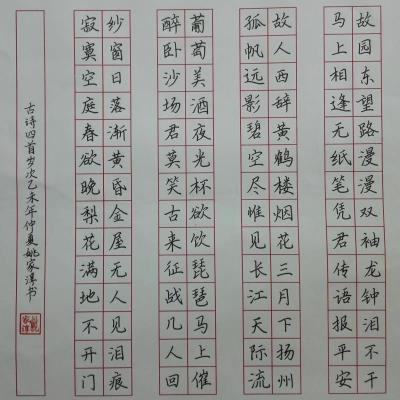 故园东望路漫漫双袖龙钟泪不干
马上相逢无纸笔凭君传语报平安
故人西辞黄鹤楼烟花三月下扬州
孤帆远影碧空尽惟见长江天际流
葡萄美酒夜光杯欲饮琵琶马上催
醉卧沙场君莫笑古来征战几人回
纱窗日落渐黄昏金屋无人见泪痕
寂寞空庭春欲晚梨花满地不开门
古诗四首岁次乙未年仲夏姚家淳书